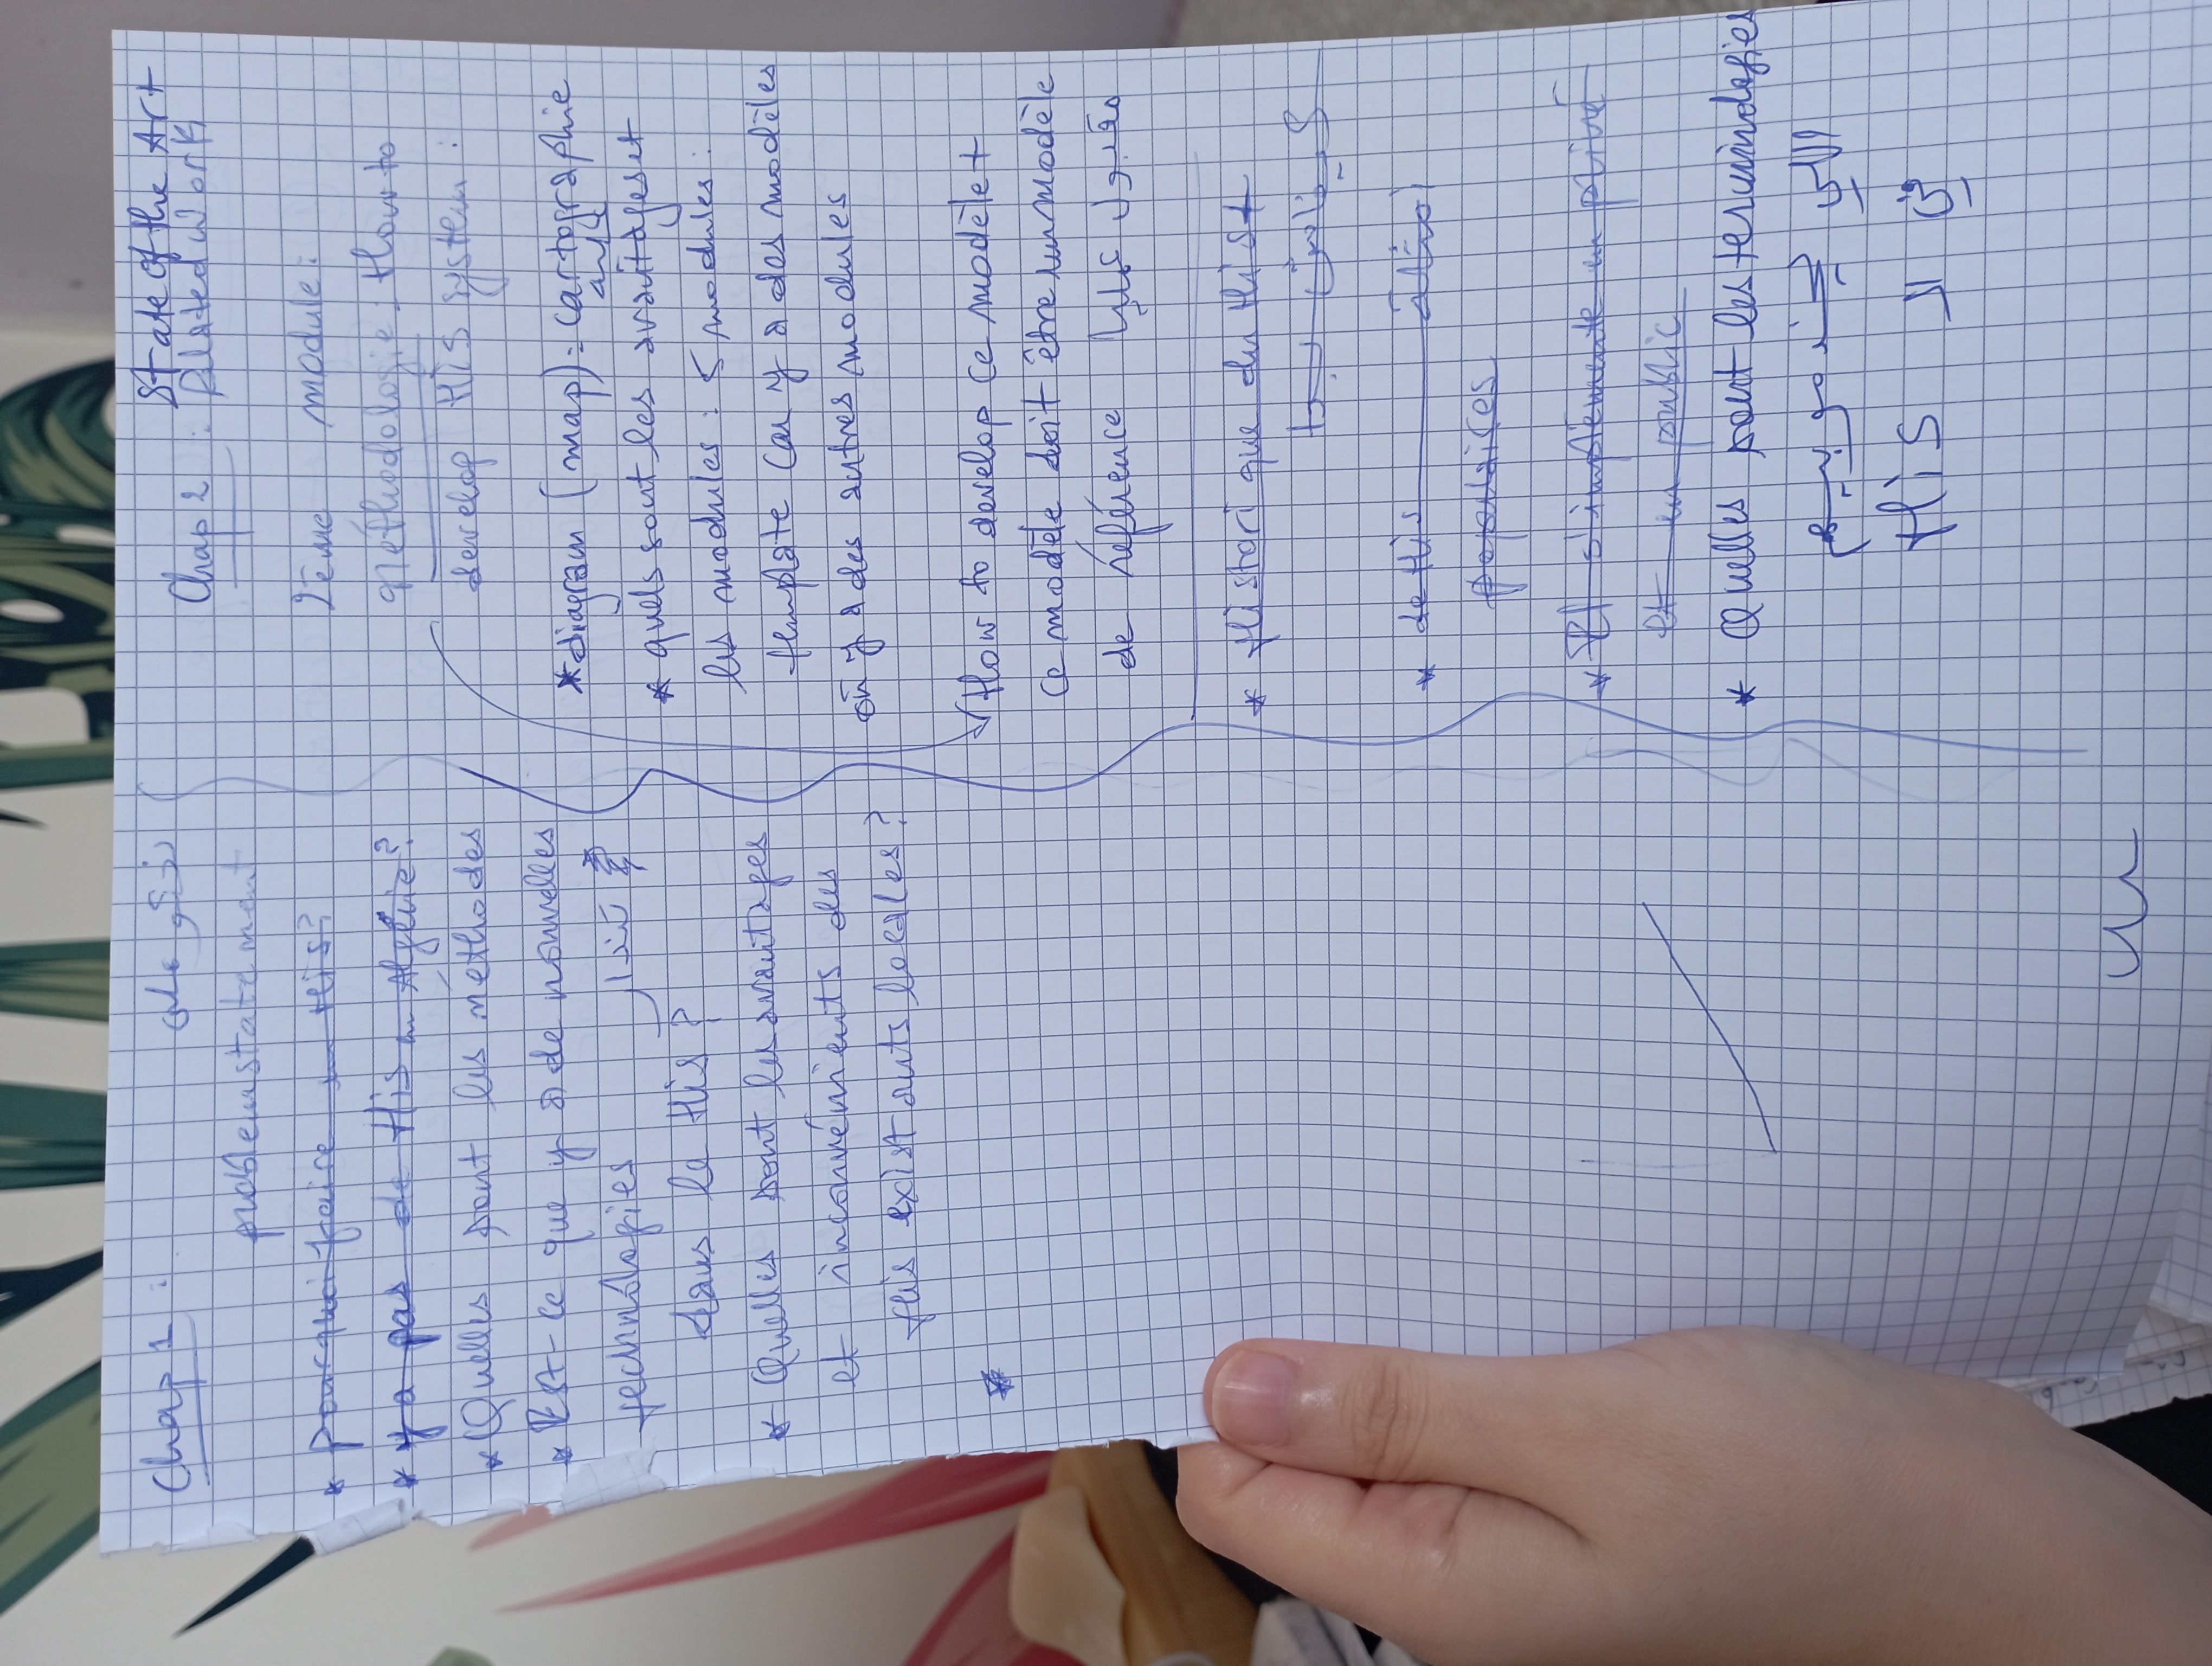 Chap 1 :
problem statement
* Pourquoi faire un His?
* y a pas de His en Algérie?
* Quelles sont les méthodes
* Est-ce que y a de nouvelles
technologies
dans le His?
* Quelles sont les avantages
et inconvénients des
his existants locales?
*
State of the Art
Chap 2 : Related Work
2ème module:
méthodologie: How to
develop His system:
* diagram (map) = cartographie
* quels sont les avantages et
les modules: 5 modules:
template car y a des modèles
où y a des autres modules
How to develop ce modèle +
ce modèle doit être un modèle
de référence مقبول علميا
* Historique du His +
* de His أمثلة
populaires
* Et s'implémente en privé
et en public
* Quelles sont les terminologies
اللي
في الـ His